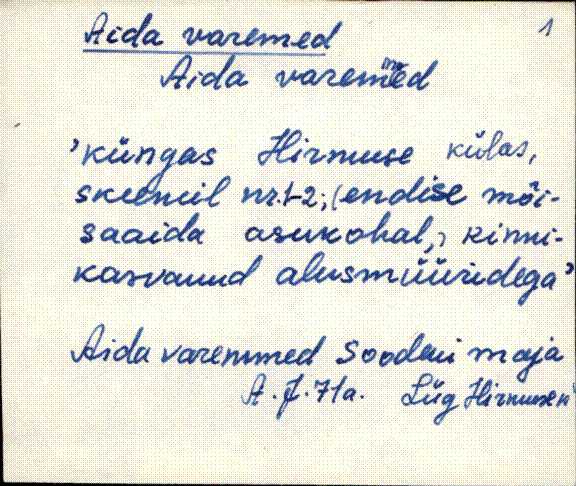 Aida varemed 1
Aida varemmed
'küngas Hirmuse külas,
skeemil nr.1-2; (endise mõi-
saaida asukohal,) kinni-
kasvanud alusmüüridega'
Aida varemmed Soodeni maja
A. J. 71a. Lüg Hirmuse